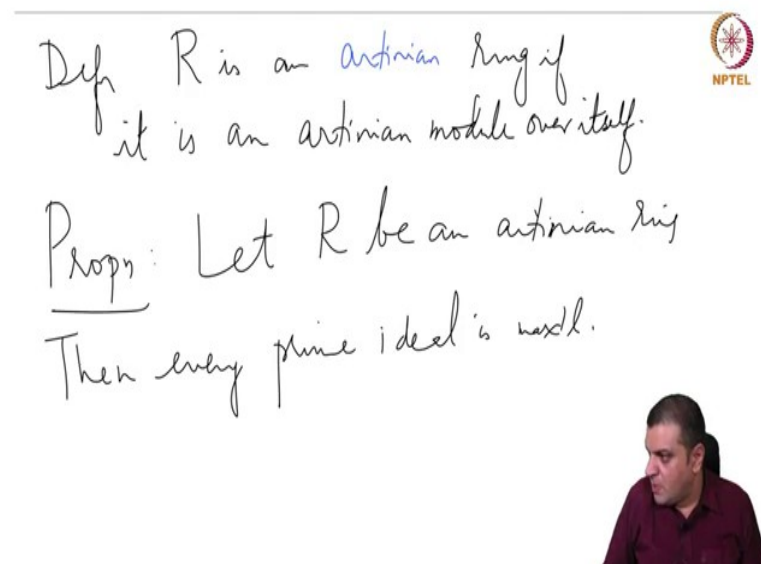 Defn R is an artinian ring if
it is an artinian module over itself.
Propn: Let R be an artinian ring
Then every prime ideal is max'l.
NPTEL